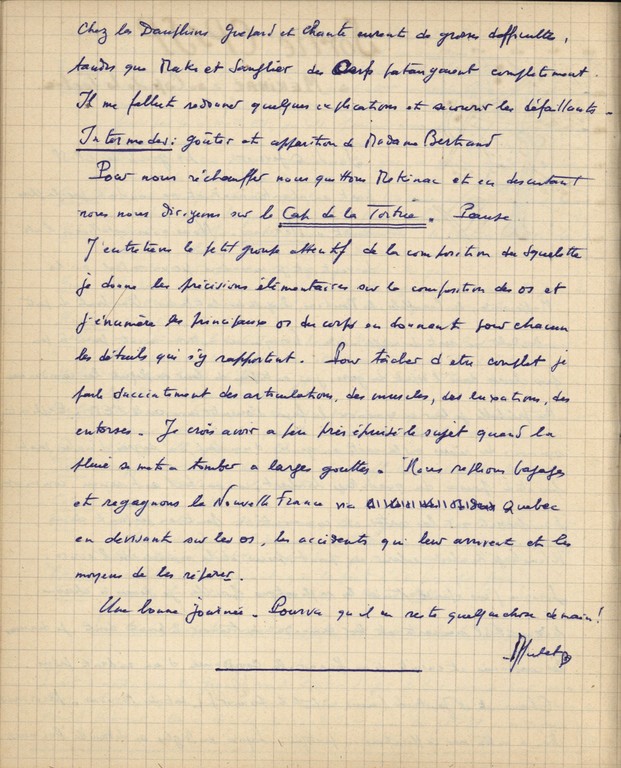 Chez les Dauphins Guépard et Chante eurent de grosses difficultés,
tandis que Maks et Sanglier des Cerfs pataugeaient complètement.
Il me fallut redonner quelques explications et secourir les défaillants.
Intermède: goûter et apparition de Madame Bertrand
Pour nous réchauffer nous quittons Mekinac et en discutant
nous nous dirigeons sur le Cap de la Tortue. Pause.
J'entretiens le petit groupe attentif de la composition du squelette
je donne les précisions élémentaires sur la composition des os et
j'énumère les principaux os du corps en donnant pour chacun
les détails qui s'y rapportent. Pour tâcher d'etre complet je
parle succintement des articulations, des muscles, des luxations, des
entorses. Je crois avoir a peu près épuisé le sujet quand la
pluie se met a tomber a larges gouttes. Nous replions bagages
et regagnons la Nouvelle France via Quebec
en devisant sur les os, les accidents qui leur arrivent et les
moyens de les réparer.
Une bonne journée. Pourvu qu'il en reste quelque chose demain!